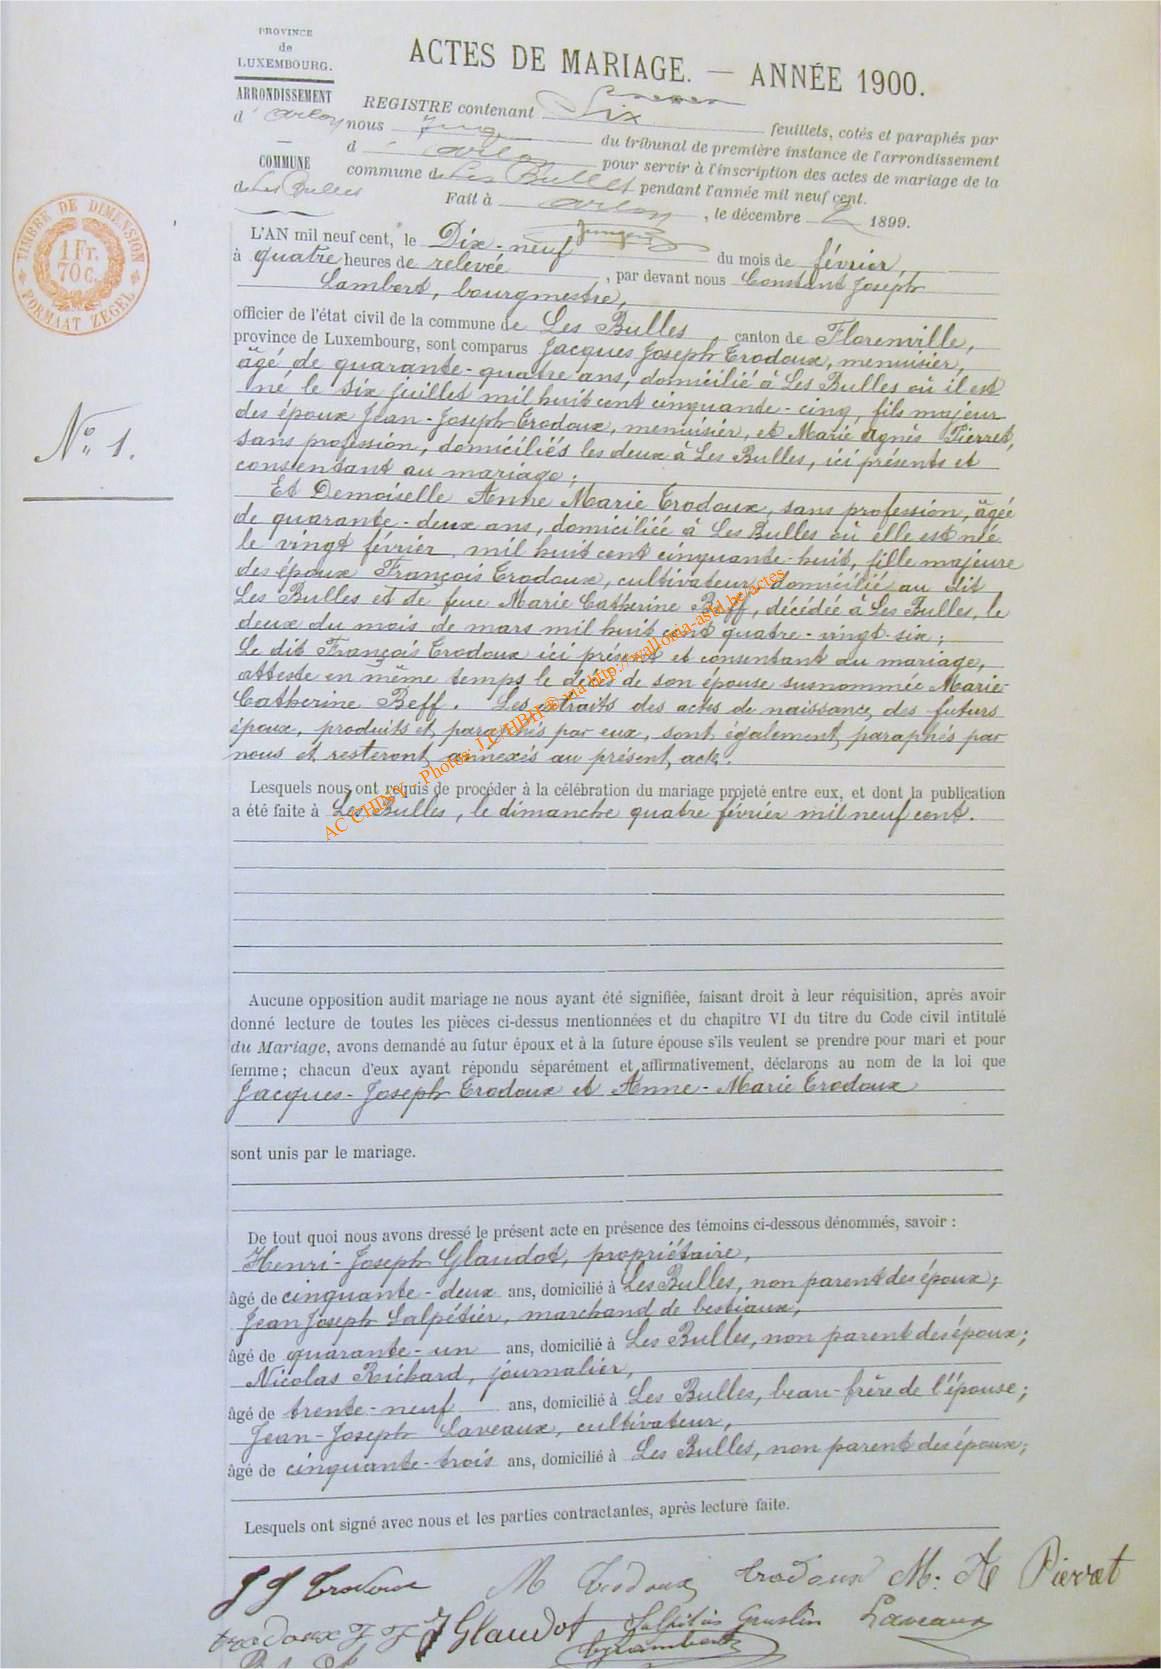 PROVINCE
de
LUXEMBOURG.
ARRONDISSEMENT
d'Arlon
COMMUNE
de Les Bulles
ACTES DE MARIAGE. — ANNÉE 1900.
REGISTRE contenant Six feuillets, cotés et paraphés par
nous Juge du tribunal de première instance de l'arrondissement
d'Arlon pour servir à l'inscription des actes de mariage de la
commune de Les Bulles pendant l'année mil neuf cent.
Fait à Arlon, le décembre 2 1899.
TIMBRE DE DIMENSION
1 Fr.
70 C.
FORMAAT ZEGEL
L'AN mil neuf cent, le Dix-neuf du mois de février,
à quatre heures de relevée, par devant nous Constant Joseph
Lambert, bourgmestre,
officier de l'état civil de la commune de Les Bulles canton de Florenville,
province de Luxembourg, sont comparus Jacques Joseph Trodoux, menuisier,
âgé de quarante-quatre ans, domicilié à Les Bulles où il est
né le six juillet mil huit cent cinquante-cinq, fils majeur
des époux Jean-Joseph Trodoux, menuisier, et Marie Agnès Pierret,
sans profession, domiciliés les deux à Les Bulles, ici présents et
consentant au mariage;
Et Demoiselle Anne Marie Trodoux, sans profession, âgée
de quarante-deux ans, domiciliée à Les Bulles où elle est née
le vingt février mil huit cent cinquante-huit, fille majeure
des époux François Trodoux, cultivateur, domicilié au dit
Les Bulles et de feue Marie Catherine Beff, décédée à Les Bulles, le
deux du mois de mars mil huit cent quatre-vingt-six;
Le dit François Trodoux ici présent et consentant au mariage,
atteste en même temps le décès de son épouse susnommée Marie-
Catherine Beff. Les extraits des actes de naissance des futurs
époux, produits et paraphés par eux, sont également paraphés par
nous et resteront annexés au présent acte.
AC CHINY - Photos: J.L. HBH © via http://walloria-asbl.be/actes
N° 1.
Lesquels nous ont requis de procéder à la célébration du mariage projeté entre eux, et dont la publication
a été faite à Les Bulles, le dimanche quatre février mil neuf cent.
Aucune opposition audit mariage ne nous ayant été signifiée, faisant droit à leur réquisition, après avoir
donné lecture de toutes les pièces ci-dessus mentionnées et du chapitre VI du titre du Code civil intitulé
du Mariage, avons demandé au futur époux et à la future épouse s'ils veulent se prendre pour mari et pour
femme; chacun d'eux ayant répondu séparément et affirmativement, déclarons au nom de la loi que
Jacques-Joseph Trodoux et Anne-Marie Trodoux
sont unis par le mariage.
De tout quoi nous avons dressé le présent acte en présence des témoins ci-dessous dénommés, savoir :
Henri-Joseph Glaudot, propriétaire,
âgé de cinquante-deux ans, domicilié à Les Bulles, non parent des époux;
Jean Joseph Salpétier, marchand de bestiaux,
âgé de quarante-un ans, domicilié à Les Bulles, non parent des époux;
Nicolas Richard, journalier,
âgé de trente-neuf ans, domicilié à Les Bulles, beau-frère de l'épouse;
Jean-Joseph Laveaux, cultivateur,
âgé de cinquante-trois ans, domicilié à Les Bulles, non parent des époux;
Lesquels ont signé avec nous et les parties contractantes, après lecture faite.
J J Trodoux M Trodoux trodoux M. A Pierret
trodoux J J J Glaudot Laveaux
Lambert